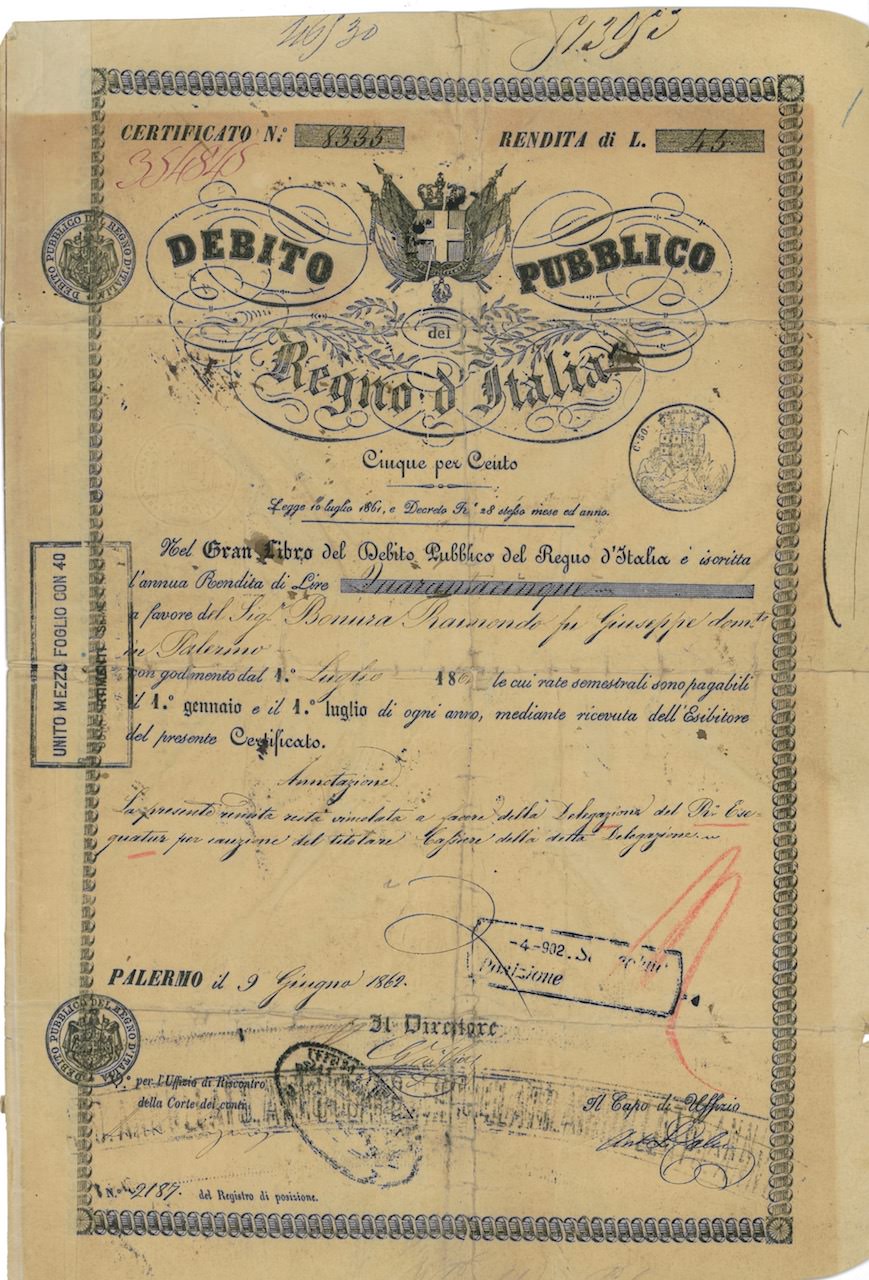 CERTIFICATO N.º 8335 RENDITA di L. 45
354845
DEBITO PUBBLICO
DEBITO PUBBLICO DEL REGNO D'ITALIA
del
Regno d'Italia
C. 50.
Cinque per Cento
Legge 10 luglio 1861, e Decreto R.º 28 stesso mese ed anno.
Nel Gran Libro del Debito Pubblico del Regno d'Italia é iscritta
l'annua Rendita di Lire Quarantacinque
a favore del Sig.r Bonura Raimondo fu Giuseppe dom.to
in Palermo
con godimento dal 1.º Luglio 186 le cui rate semestrali sono pagabili
il 1.º gennaio e il 1.º luglio di ogni anno, mediante ricevuta dell'Esibitore
del presente Certificato.
UNITO MEZZO FOGLIO CON 40
Annotazione
La presente rendita resta vincolata a favore della Delegazione del R.º Exe-
quatur per cauzione del titolare Cassiere della detta Delegazione.
-4-902
Posizione
PALERMO il 9 Giugno 1862.
Il Direttore
DEBITO PUBBLICO DEL REGNO D'ITALIA
V.º per l'Uffizio di Riscontro
della Corte dei conti
Il Capo di Uffizio
N.º 2187. del Registro di posizione.